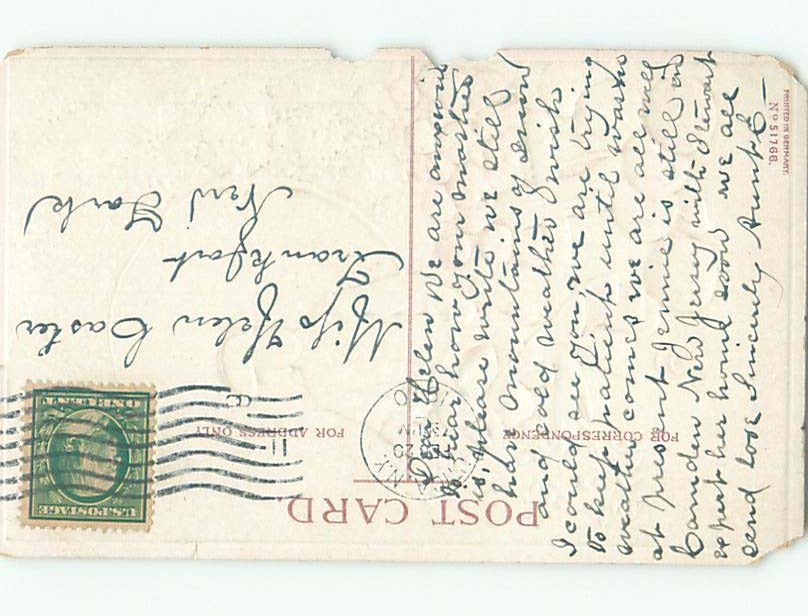 POST CARD
FOR CORRESPONDENCE
FOR ADDRESS ONLY
U.S. POSTAGE
ONE CENT
N.Y.
FEB 20
1910
Dear Helen We are anxious
to hear how your mother
is, please write we still
have mountains of snow
and cold weather I wish
I could see you, we are trying
to keep patient until warm
weather comes we are all well
at present Jennie is still in
Camden New Jersey with Stewart
expect her home soon we all
send love Sincerely Aunt C-
Miss Helen Caster
Frankfort
New York
No 51766.
PRINTED IN GERMANY.